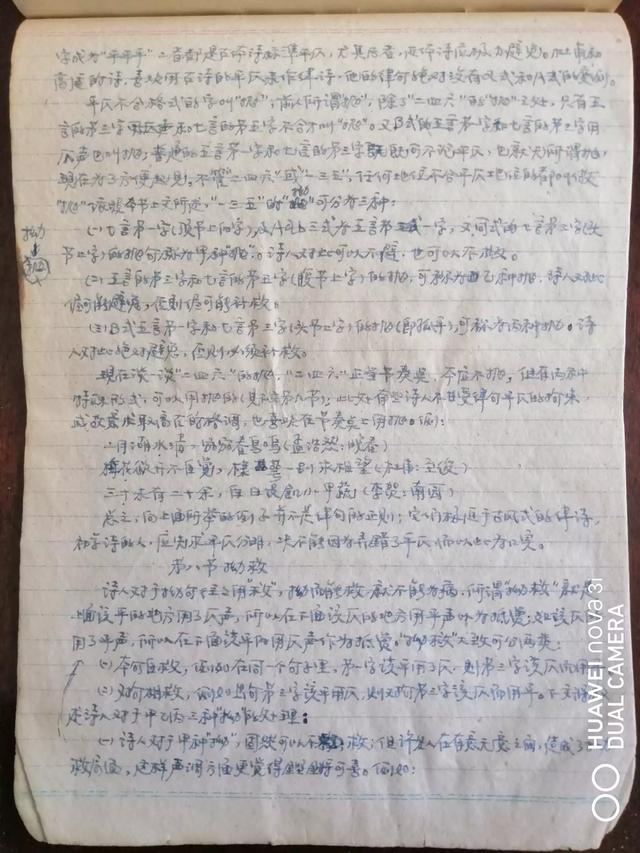 字成为“平平平”二音都是近体诗标准平仄，尤其后者，近体诗应极力避免。
高适的诗，喜欢用古诗的平仄来作律诗，他的律句绝对没有
平仄不合格式的字叫“拗”；前人所谓“拗”，除了“二四六”的“拗”之外，只有五
言的第三字和七言的第五字不合才叫“拗”。又B式的五言第一字和七言的第三字用
仄声也叫拗；普通的五言第一字和七言的第三字既可不论平仄，也就无所谓拗，
现在为了方便起见，不管“二四六”或“一三五”，任何地位不合平仄地位的都叫做
“拗”。依照本节上文所述，“一三五”的“拗”可分为三种：
拗
(一) 七言第一字(顶节上字)，及A a b三式五言第一字，又同式的七言第三字(头
节上字)的拗可称为甲种“拗”。诗人对此可以不避，也可以不救。
(二) 五言的第三字和七言的第五字(腹节上字)的拗，可称为乙种拗，诗人对此
尽可能避免，否则尽可能补救。
(三) B式五言第一字和七言第三字(头节上字)的拗(即孤平)，可称为丙种拗。诗
人对此绝对避忌，否则必须补救。
现在谈一谈“二四六”的拗，“二四六”正当节奏点，本应不拗，但有两种
特殊形式，可以用拗的(见第九节)；此外有些诗人不甘受律句平仄的拘束，
或故意求取高古的格调，也喜欢在节奏点上用拗。例：
二月湖水清，家家春鸟鸣(孟浩然：晚春)
梅花欲开不自觉，棣萼一别永相望(杜甫：至后)
三十未有二十余，白日长饥小甲蔬(李贺：南园)
总之，向上面所举的例子并不是律句的正则；它们都近于古风式的律诗，
初学诗的人，应先求平仄分明，决不能因为弄错了平仄而以此为口实。
第八节 拗救
诗人对于拗句往往用“救”，拗而能救，就不能为病，所谓“拗救”就是
上面该平的地方用了仄声，所以在下面该仄的地方用平声以为抵偿；如该仄
用了平声，所以在下面该平的用仄声作为抵偿。“拗救”大致可分两类：
(一) 本句自救，例如在同一个句子里，第一字该平用了仄，则第三字该仄而用
(二) 对句相救，例如出句第三字该平用仄，则对句第三字该仄而用平。下文
述诗人对于甲乙丙三种“拗”的处理：
(一) 诗人对于甲种“拗”，固然可以不救；但诗人在有意无意之间，造成了
救局面，这样声调方面更觉得铿锵可喜。例如：
HUAWEI nova 3i
DUAL CAMERA